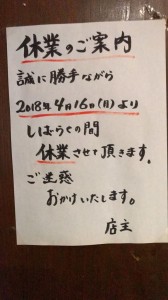 休業のご案内
誠に勝手ながら
2018年4月16日(月)より
しばらくの間
休業させて頂きます。
ご迷惑
おかけいたします。
店主